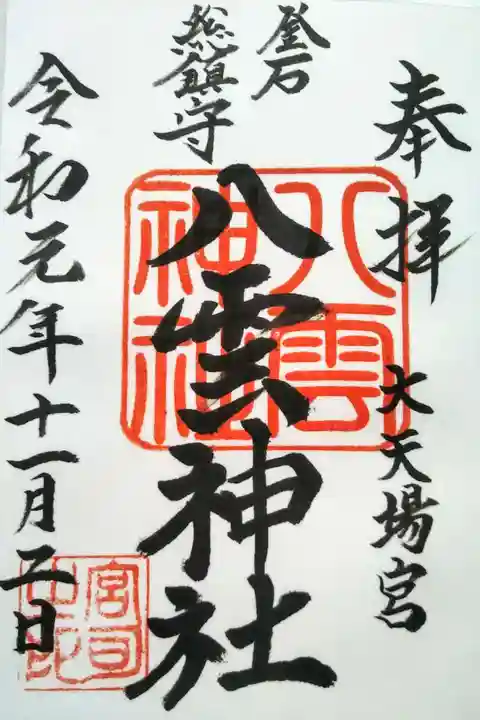 奉拝
大天場宮
釜石
総鎮守
八雲神社
八雲
神社
令和元年十一月二日
宮司
之印